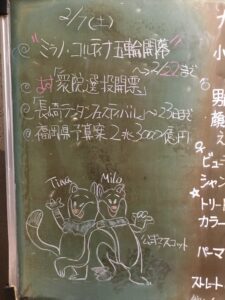 2/7(土)
"ミラノ・コルティナ五輪開幕"
〜2/22まで
あす「衆院選投開票」
「長崎ランタンフェスティバル」〜23日まで
福岡県予算案 2兆3000億円
Tina Milo
公式マスコット
小
男
顔
え
ビュー
シャン
トリート
カラー
パーマ
ストレート